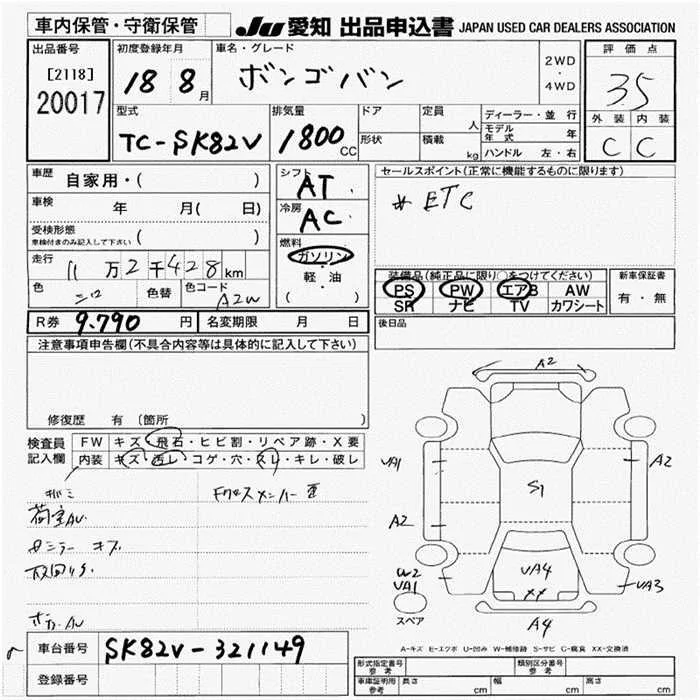 車内保管・守衛保管
JU 愛知 出品申込書 JAPAN USED CAR DEALERS ASSOCIATION
出品番号
[2118]
20017
初度登録年月
18 8月
車名・グレード
ボンゴバン
2WD
・
4WD
評価点
35
外装 内装
C C
型式
TC-SK82V
排気量
1800CC
ドア
形状
定員
人
積載
kg
ディーラー・並行
モデル年式 年
ハンドル 左・右
車歴 自家用・( )
車検 年 月( 日)
受検形態
車検付きのみ記入して下さい ( )
走行
11万2千428km
色
シロ
色替
色コード
A2W
シフト
AT
冷房
AC
燃料
ガソリン
・
軽・油
( )
セールスポイント(正常に機能するものに限ります)
* ETC
装備品(純正品に限り○をつけてください)
PS PW エアB AW
SR ナビ TV カワシート
新車保証書
有・無
R券 9.790 円
名変期限 月 日
後日品
注意事項申告欄(不具合内容等は具体的に記入して下さい)
修復歴 有 (箇所 )
検査員
記入欄
FW キズ・飛石・ヒビ割・リペア跡・X要
内装 キズ・汚レ・コゲ・穴・スレ・キレ・破レ
荷室AU.
A2
UA1
A2
S1
A2
W2
UA1
UA4
XX
UA3
スペア
A4
A-キズ E-エクボ U-凹み W-補修跡 S-サビ C-腐食 XX-交換済
車台番号 SK82V-321149
登録番号
形式指定番号
参考
類別区分番号
参考
車庫証明用
参考
長さ cm
幅 cm
高さ cm